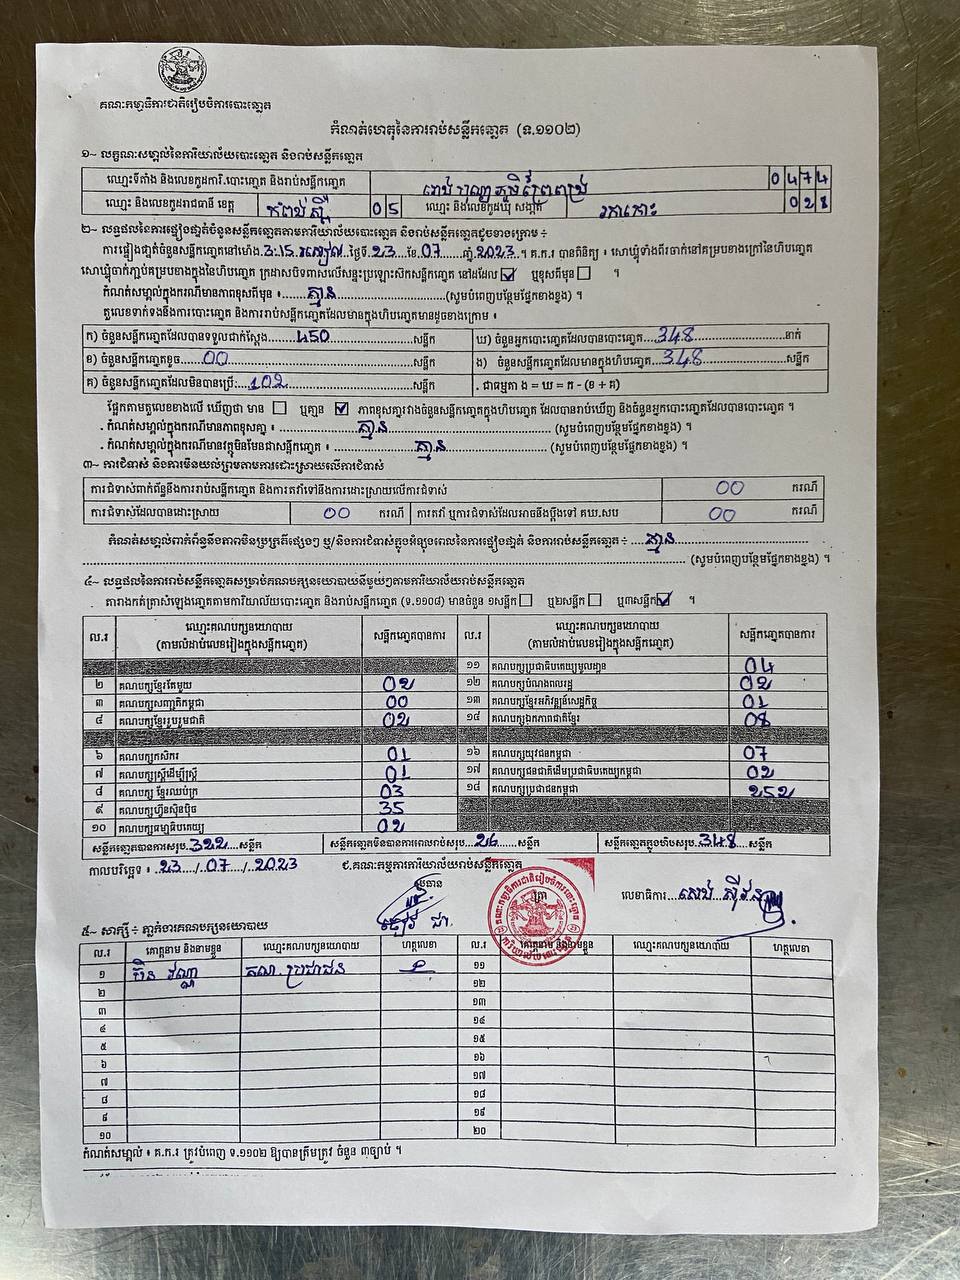 គណៈកម្មាធិការជាតិរៀបចំការបោះឆ្នោត
កំណត់ហេតុនៃការរាប់សន្លឹកឆ្នោត (ទ.១១០២)
១~ លក្ខណៈសម្គាល់នៃការិយាល័យបោះឆ្នោត និងរាប់សន្លឹកឆ្នោត
ឈ្មោះទីតាំង និងលេខកូដការិ.បោះឆ្នោត និងរាប់សន្លឹកឆ្នោត 0474
ឈ្មោះ និងលេខកូដរាជធានី ខេត្ត កំពង់ស្ពឺ 05 ឈ្មោះ និងលេខកូដឃុំ សង្កាត់ រកាកោះ 028
២~ លទ្ធផលនៃការផ្ទៀងផ្ទាត់ចំនួនសន្លឹកឆ្នោតតាមការិយាល័យបោះឆ្នោត និងរាប់សន្លឹកឆ្នោតដូចខាងក្រោម ÷
ការផ្ទៀងផ្ទាត់ចំនួនសន្លឹកឆ្នោតនៅម៉ោង 3:15 រសៀល ថ្ងៃទី 23 ខែ 07 ឆ្នាំ 2023 ។ គ.ក.រ បានពិនិត្យ ៖ សោឃ្លុំទាំងពីរចាក់នៅគម្របខាងក្រៅនៃហិបឆ្នោត
សោឃ្លុំចាក់ភ្ជាប់គម្របខាងក្នុងនៃហិបឆ្នោត ក្រដាសបិទពាសលើសន្ទះប្រឡោះសិកសន្លឹកឆ្នោត នៅដដែល ☑ ឬខុសពីមុន ☐ ។
កំណត់សម្គាល់ក្នុងករណីមានភាពខុសពីមុន ៖ គ្មាន (សូមបំពេញបន្ថែមផ្នែកខាងខ្នង) ។
តួលេខទាក់ទងនឹងការបោះឆ្នោត និងការរាប់សន្លឹកឆ្នោតដែលមានក្នុងហិបឆ្នោតមានដូចខាងក្រោម ៖
ក) ចំនួនសន្លឹកឆ្នោតដែលបានទទួលជាក់ស្តែង 450 សន្លឹក ឃ) ចំនួនអ្នកបោះឆ្នោតដែលបានបោះឆ្នោត 348 នាក់
ខ) ចំនួនសន្លឹកឆ្នោតខូច 00 សន្លឹក ង) ចំនួនសន្លឹកឆ្នោតដែលមានក្នុងហិបឆ្នោត 348 សន្លឹក
គ) ចំនួនសន្លឹកឆ្នោតដែលមិនបានប្រើ 102 សន្លឹក . ជាធម្មតា ង = ឃ = ក - (ខ + គ)
ផ្អែកតាមតួលេខខាងលើ ឃើញថា មាន ☐ ឬគ្មាន ☑ ភាពខុសគ្នារវាងចំនួនសន្លឹកឆ្នោតក្នុងហិបឆ្នោត ដែលបានរាប់ឃើញ និងចំនួនអ្នកបោះឆ្នោតដែលបានបោះឆ្នោត ។
. កំណត់សម្គាល់ក្នុងករណីមានភាពខុសគ្នា ៖ គ្មាន (សូមបំពេញបន្ថែមផ្នែកខាងខ្នង) ។
. កំណត់សម្គាល់ក្នុងករណីមានវត្ថុមិនមែនជាសន្លឹកឆ្នោត ៖ គ្មាន (សូមបំពេញបន្ថែមផ្នែកខាងខ្នង) ។
៣~ ការជំទាស់ និងការមិនយល់ព្រមតាមការដោះស្រាយលើការជំទាស់
ការជំទាស់ពាក់ព័ន្ធនឹងការរាប់សន្លឹកឆ្នោត និងការតវ៉ាទៅនឹងការដោះស្រាយលើការជំទាស់ 00 ករណី
ការជំទាស់ដែលបានដោះស្រាយ 00 ករណី ការតវ៉ា ឬការជំទាស់ដែលអាចនឹងប្តឹងទៅ គឃ.សប 00 ករណី
កំណត់សម្គាល់ពាក់ព័ន្ធនឹងភាពមិនប្រក្រតីផ្សេងៗ ឬ/និងការជំទាស់ក្នុងអំឡុងពេលនៃការផ្ទៀងផ្ទាត់ និងការរាប់សន្លឹកឆ្នោត ÷ គ្មាន
(សូមបំពេញបន្ថែមផ្នែកខាងខ្នង) ។
៤~ លទ្ធផលនៃការរាប់សន្លឹកឆ្នោតសម្រាប់គណបក្សនយោបាយនីមួយៗតាមការិយាល័យរាប់សន្លឹកឆ្នោត
តារាងកត់ត្រាសំឡេងឆ្នោតតាមការិយាល័យបោះឆ្នោត និងរាប់សន្លឹកឆ្នោត (ទ.១១០៨) មានចំនួន ១សន្លឹក ☐ ឬ២សន្លឹក ☐ ឬ៣សន្លឹក ☑ ។
ល.រ ឈ្មោះគណបក្សនយោបាយ (តាមលំដាប់លេខរៀងក្នុងសន្លឹកឆ្នោត) សន្លឹកឆ្នោតបានការ ល.រ ឈ្មោះគណបក្សនយោបាយ (តាមលំដាប់លេខរៀងក្នុងសន្លឹកឆ្នោត) សន្លឹកឆ្នោតបានការ
១១ គណបក្សប្រជាធិបតេយ្យមូលដ្ឋាន 04
២ គណបក្សខ្មែរតែមួយ 02 ១២ គណបក្សបំណងពលរដ្ឋ 02
៣ គណបក្សសញ្ជាតិកម្ពុជា 00 ១៣ គណបក្សខ្មែរអភិវឌ្ឍន៍សេដ្ឋកិច្ច 01
៤ គណបក្សខ្មែររួបរួមជាតិ 02 ១៤ គណបក្សឯកភាពជាតិខ្មែរ 08
៦ គណបក្សកសិករ 01 ១៦ គណបក្សយុវជនកម្ពុជា 07
៧ គណបក្សស្រ្តីដើម្បីស្រ្តី 01 ១៧ គណបក្សជនជាតិដើមប្រជាធិបតេយ្យកម្ពុជា 02
៨ គណបក្ស ខ្មែរឈប់ក្រ 03 ១៨ គណបក្សប្រជាជនកម្ពុជា 252
៩ គណបក្សហ៊្វុនស៊ិនប៉ិច 35
១០ គណបក្សធម្មាធិបតេយ្យ 02
សន្លឹកឆ្នោតបានការសរុប 322 សន្លឹក សន្លឹកឆ្នោតមិនបានការពេលរាប់សរុប 26 សន្លឹក សន្លឹកឆ្នោតក្នុងហិបសរុប 348 សន្លឹក
កាលបរិច្ឆេទ ៖ 23 / 07 / 2023 ជ.គណៈកម្មការការិយាល័យរាប់សន្លឹកឆ្នោត
ប្រធាន ត្រា លេខាធិការ
គណៈកម្មាធិការជាតិរៀបចំការបោះឆ្នោត
ការិយាល័យបោះឆ្នោត
៥~ សាក្សី ÷ ភ្នាក់ងារគណបក្សនយោបាយ
ល.រ គោត្តនាម និងនាមខ្លួន ឈ្មោះគណបក្សនយោបាយ ហត្ថលេខា ល.រ គោត្តនាម និងនាមខ្លួន ឈ្មោះគណបក្សនយោបាយ ហត្ថលេខា
១ គណ.ប្រជាជន ១១
២ ១២
៣ ១៣
៤ ១៤
៥ ១៥
៦ ១៦
៧ ១៧
៨ ១៨
៩ ១៩
១០ ២០
កំណត់សម្គាល់ ៖ គ.ក.រ ត្រូវបំពេញ ទ.១១០២ ឱ្យបានត្រឹមត្រូវ ចំនួន ៣ច្បាប់ ។